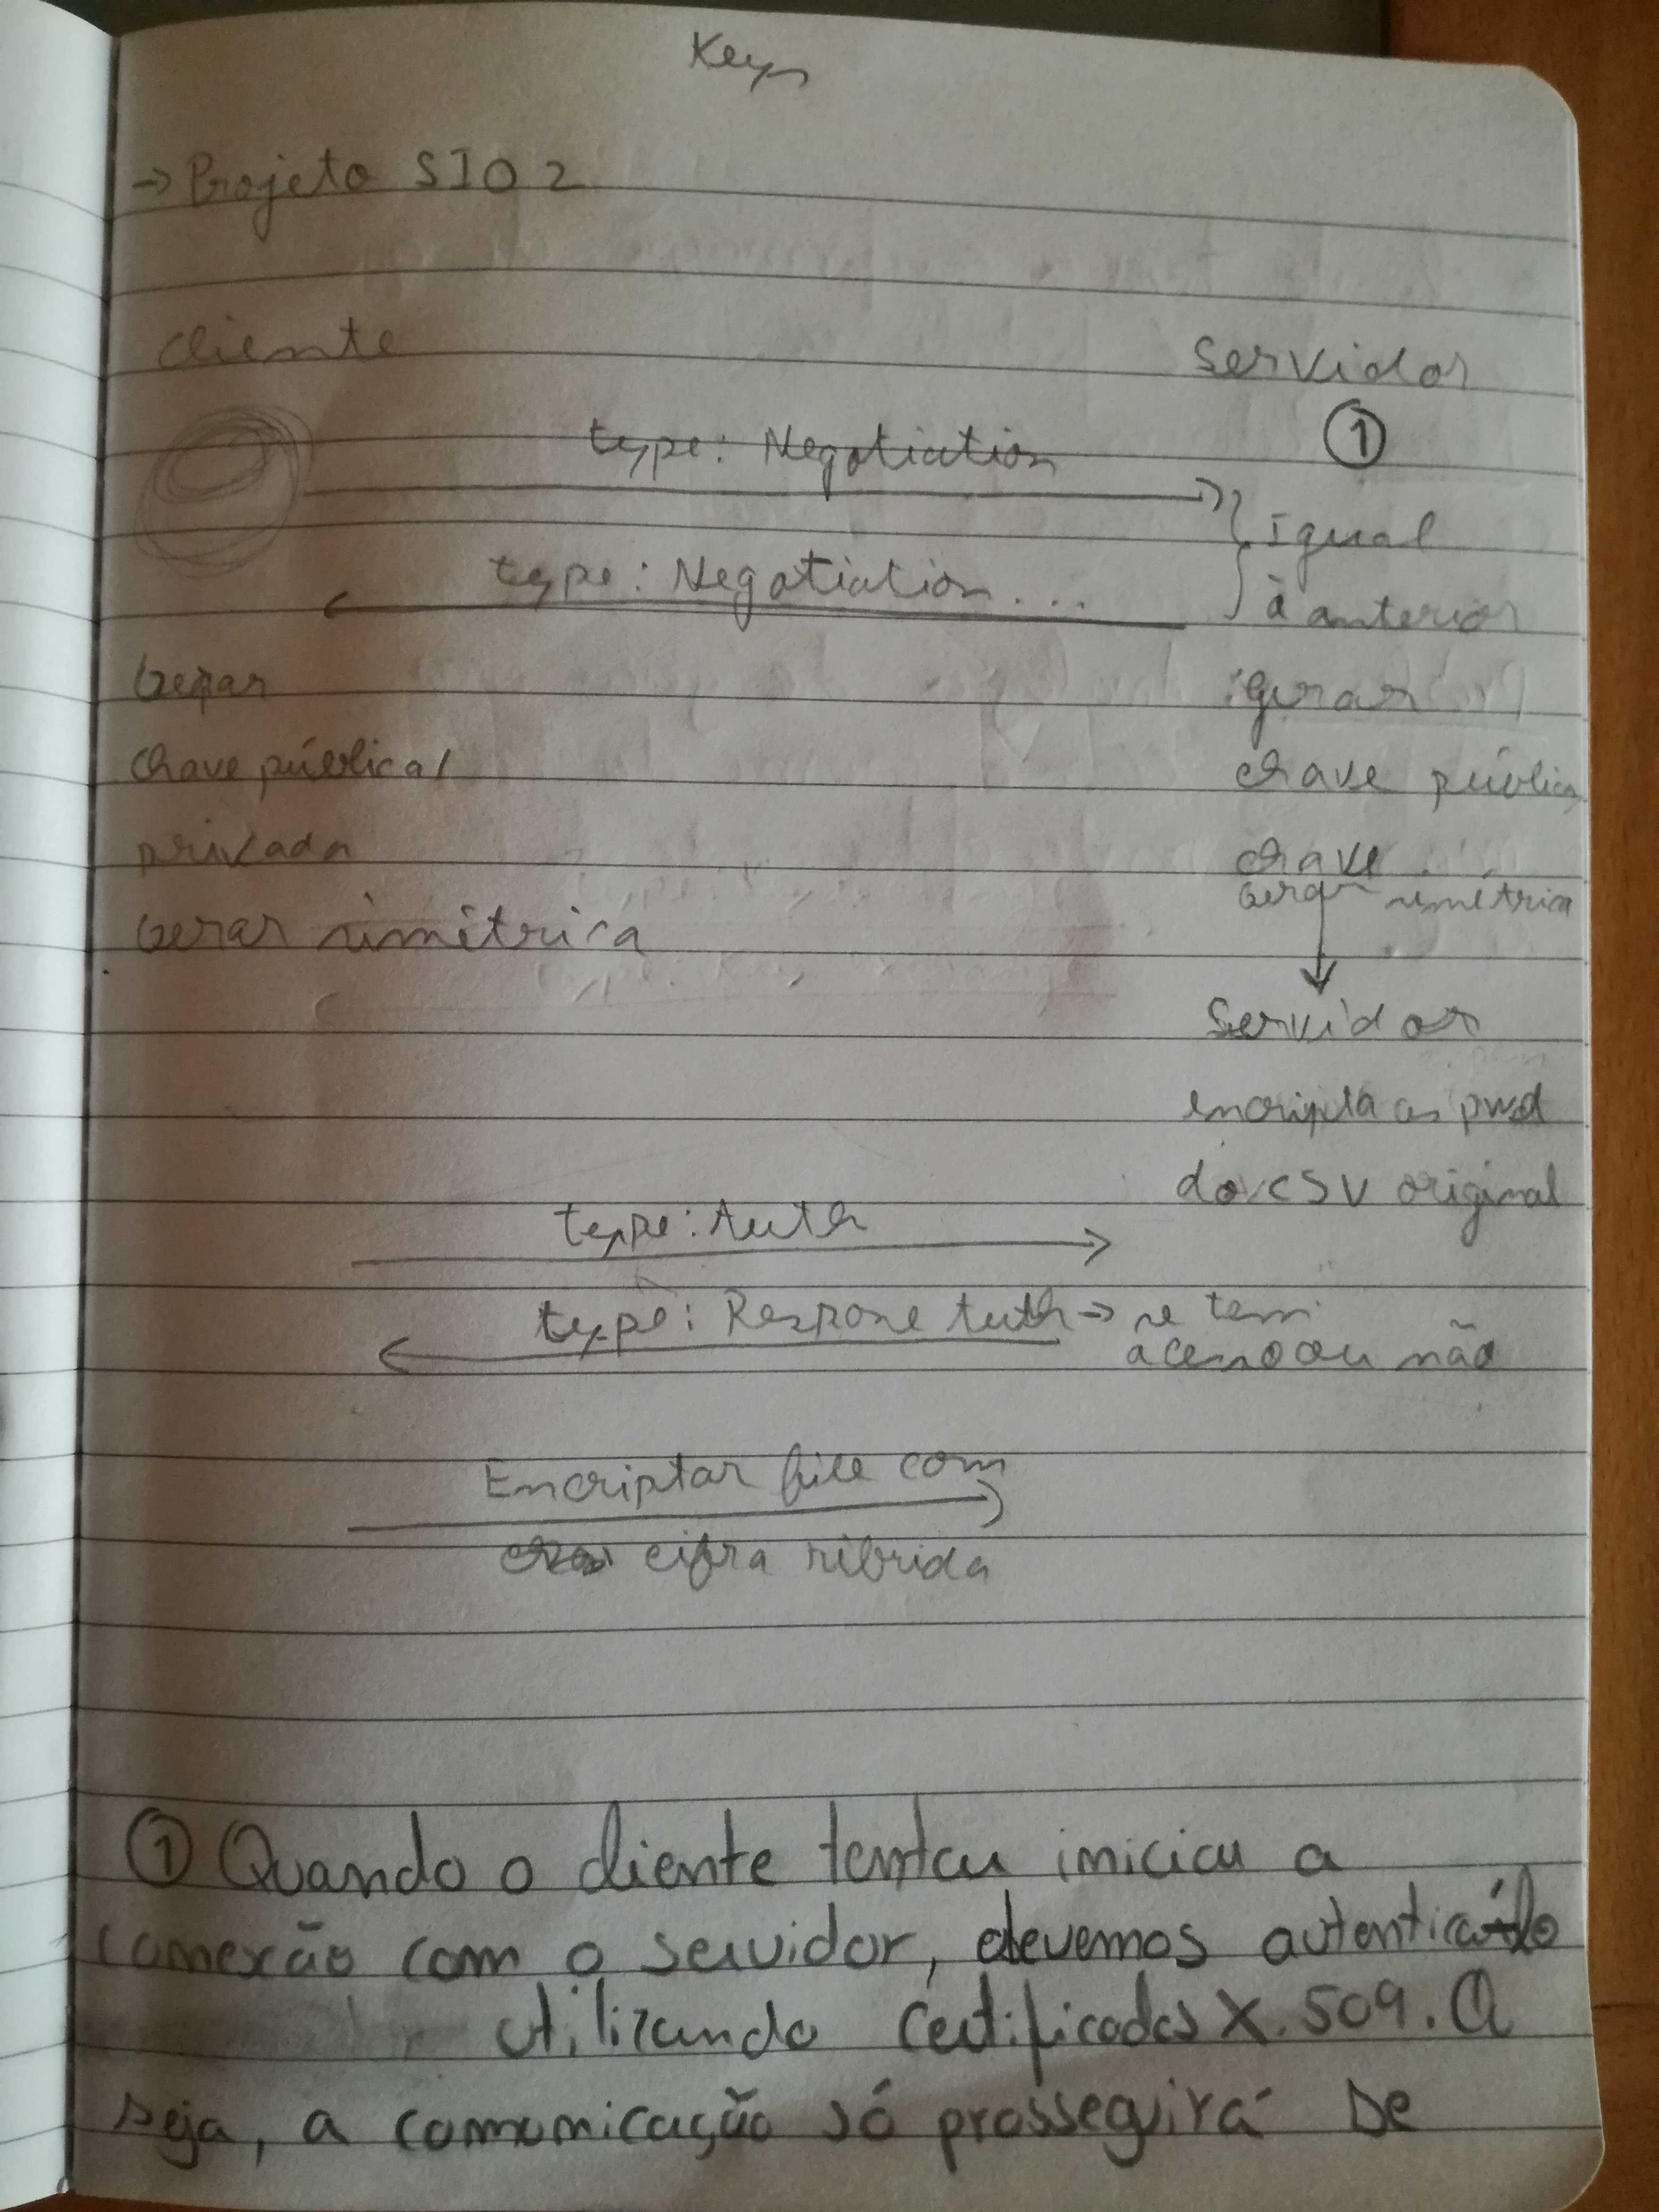 Keys
→ Projeto SIO 2
cliente
Servidor
①
type: Negotiation
igual
type: Negotiation...
à anterior
Gerar
gerar
chave pública/
chave pública
privada
chave
Gerar simétrica
Gerar simétrica
Servidor
encripta as pwd
do CSV original
type: Auth
type: Respose Auth → se tem
acesso ou não
Encriptar file com
cifra híbrida
① Quando o cliente tentar iniciar a
conexão com o servidor, devemos autenticá-lo
utilizando certificados X.509. O
seja, a comunicação só prosseguirá se